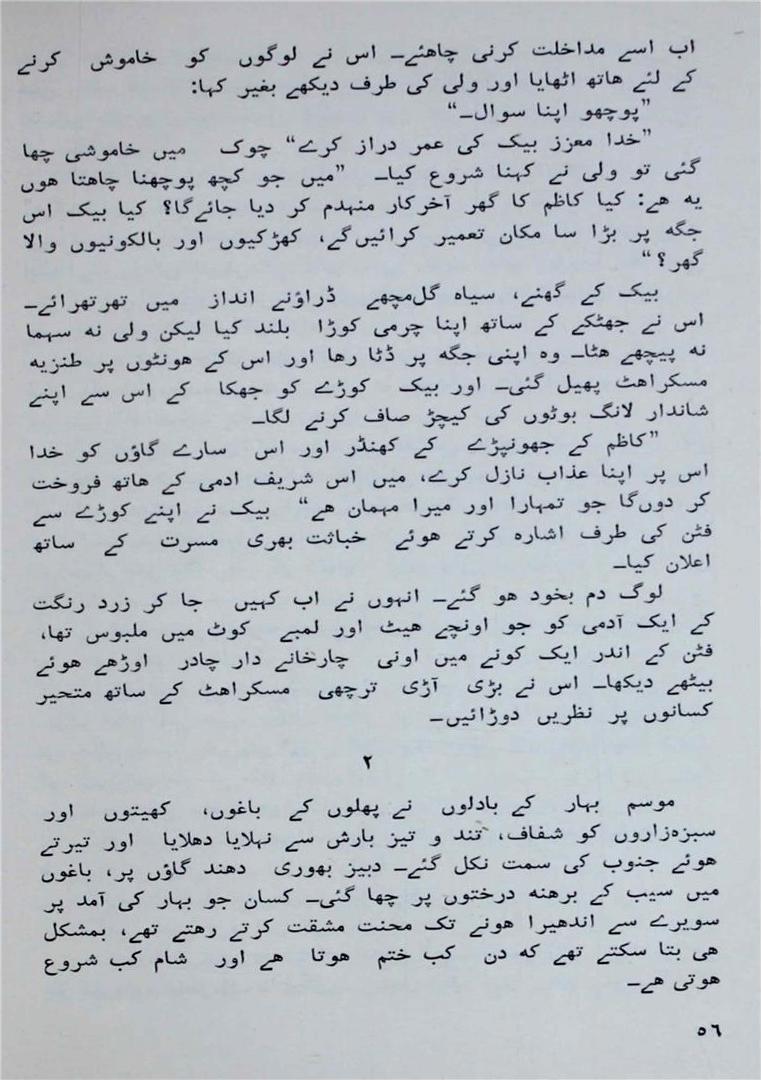 اب اسے مداخلت کرنی چاھئے۔ اس نے لوگوں کو خاموش کرنے
کے لئے ھاتھ اٹھایا اور ولی کی طرف دیکھے بغیر کہا:
”پوچھو اپنا سوال۔“
”خدا معزز بیک کی عمر دراز کرے“ چوک میں خاموشی چھا
گئی تو ولی نے کہنا شروع کیا۔ ”میں جو کچھ پوچھنا چاھتا ھوں
یہ ھے: کیا کاظم کا گھر آخرکار منہدم کر دیا جائےگا؟ کیا بیک اس
جگہ پر بڑا سا مکان تعمیر کرائیںگے، کھڑکیوں اور بالکونیوں والا
گھر؟“
بیک کے گھنے، سیاہ گل‌مچھے ڈراؤنے انداز میں تھرتھرائے۔
اس نے جھٹکے کے ساتھ اپنا چرمی کوڑا بلند کیا لیکن ولی نہ سہما
نہ پیچھے ھٹا۔ وہ اپنی جگہ پر ڈٹا رھا اور اس کے ھونٹوں پر طنزیہ
مسکراھٹ پھیل گئی۔ اور بیک کوڑے کو جھکا کے اس سے اپنے
شاندار لانگ بوٹوں کی کیچڑ صاف کرنے لگا۔
”کاظم کے جھونپڑے کے کھنڈر اور اس سارے گاؤں کو خدا
اس پر اپنا عذاب نازل کرے، میں اس شریف ادمی کے ھاتھ فروخت
کر دوںگا جو تمہارا اور میرا مہمان ھے“ بیک نے اپنے کوڑے سے
فٹن کی طرف اشارہ کرتے ھوئے خباثت بھری مسرت کے ساتھ
اعلان کیا۔
لوگ دم بخود ھو گئے۔ انہوں نے اب کہیں جا کر زرد رنگت
کے ایک آدمی کو جو اونچے ھیٹ اور لمبے کوٹ میں ملبوس تھا،
فٹن کے اندر ایک کونے میں اونی چارخانے دار چادر اوڑھے ھوئے
بیٹھے دیکھا۔ اس نے بڑی آڑی ترچھی مسکراھٹ کے ساتھ متحیر
کسانوں پر نظریں دوڑائیں۔
۲
موسم بہار کے بادلوں نے پھلوں کے باغوں، کھیتوں اور
سبزہ‌زاروں کو شفاف، تند و تیز بارش سے نہلایا دھلایا اور تیرتے
ھوئے جنوب کی سمت نکل گئے۔ دبیز بھوری دھند گاؤں پر، باغوں
میں سیب کے برھنہ درختوں پر چھا گئی۔ کسان جو بہار کی آمد پر
سویرے سے اندھیرا ھونے تک محنت مشقت کرتے رھتے تھے، بمشکل
ھی بتا سکتے تھے کہ دن کب ختم ھوتا ھے اور شام کب شروع
ھوتی ھے۔
٥٦